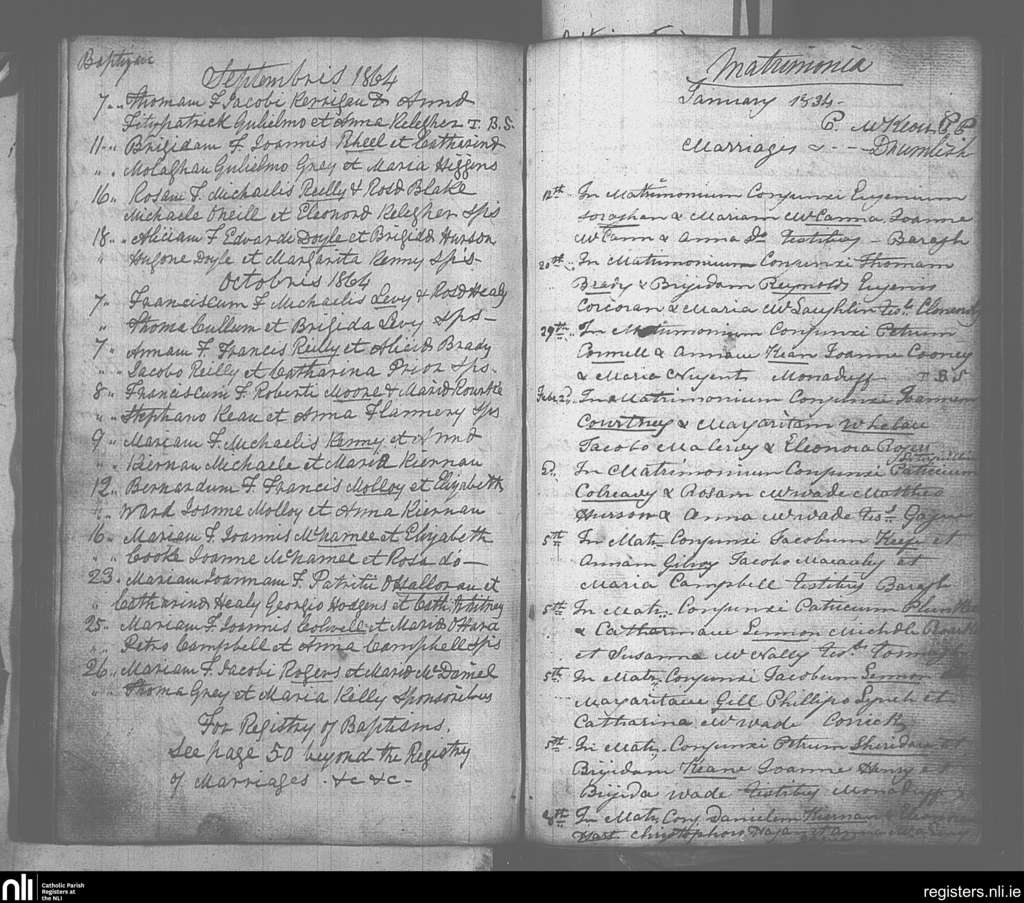 Baptizavi
Septembris 1864
7 " Thomam F. Jacobi Kerrigan & Anna
Fitzpatrick Gulielmo et Anna Kelegher T. B. S.
11 " Brigidam F Joannis Rheel et Catharina
" . Molaghan Gulielmo Grey et Maria Higgins
16 " Rosam F. Michaelis Reilly & Rosa Blake
Michaele Oneill et Eleonora Kelegher Sps
18 " Aliciam F Edvardi Doyle et Brigida Hurson
" Hugone Doyle et Margarita Kenny Sps-
Octobris 1864
7 " Franciscum F Michaelis Levy & Rosa Healy
" Thoma Cullum et Brigida Levy Sps-
7 " Annam F. Francis Reilly et Alicia Brady
" Jacobo Reilly et Catharina Prior Sps-
8 " Franciscum F. Roberti Moore & Maria Rourke
" Stephano Kean et Anna Flannery Sps
9 " Mariam F. Michaelis Kenny et Anna
" Kiernan Michaele et Maria Kiernan
12 " Bernardum F. Francis Molloy et Elizabeth
" Ward Joanne Molloy et Anna Kiernan
16 " Mariam F. Joannis McNamee et Elizabeth
" Cooke Joanne McNamee et Rosa do-
23 . Mariam Joannam F. Patritii O'Halloran et
" Catharina Healy Georgio Hodgens et Cath. Whitney
25 " Mariam F. Joannis Colwell et Maria O'Hara
" Petro Campbell et Anna Campbell Sps
26 " Mariam F. Jacobi Rogers et Maria McDaniel
" Thoma Grey et Maria Kelly Sponsoribus
For Registry of Baptisms,
See page 50 beyond the Registry
of Marriages &c &c-
Matrimonia
January 1834-
P. McKeon P. P.
Marriages - Drumlish
12th In Matrimonium Conjunxi Eugenium
Soraghan & Mariam McCanna Joanne
McCann & Anna Do Testibus - Baragh
20th In Matrimonium Conjunxi Thomam
Brady & Brigidam Reynolds Eugenio
Corcoran & Maria McLaughlin
29th In Matrimonium Conjunxi Petrum
Connell & Annam Kean Joanne Cooney
& Maria Nugent Monaduff T B S
Feb. 2d In Matrimonium Conjunxi Joannem
Courtney & Margaritam Whelan
Jacobo & Eleonora
In Matrimonium Conjunxi Patricium
Colreavy & Rosam McWade Mattheo
Hurson & Anna McWade
5th In Mat. Conjunxi Jacobum Keefe et
Annam Gilroy Jacobo Macauley et
Maria Campbell Testibus Baragh
5th In Mati. Conjunxi Patricium
& Catharinam Lennon
et Susanna McNally
5th In Mati. Conjunxi Jacobum Lennon
Margaritam Gill Phillipo Lynch et
Catharina McWade
5th In Mati. Conjunxi Petrum Sheridan et
Brigidam Keane Joanne Henry et
Brijida Wade Testibus Monaduff
8th In Mati. Conj. Danielem
Hart Christophoro
nli
Catholic Parish
Registers at
the NLI
registers.nli.ie